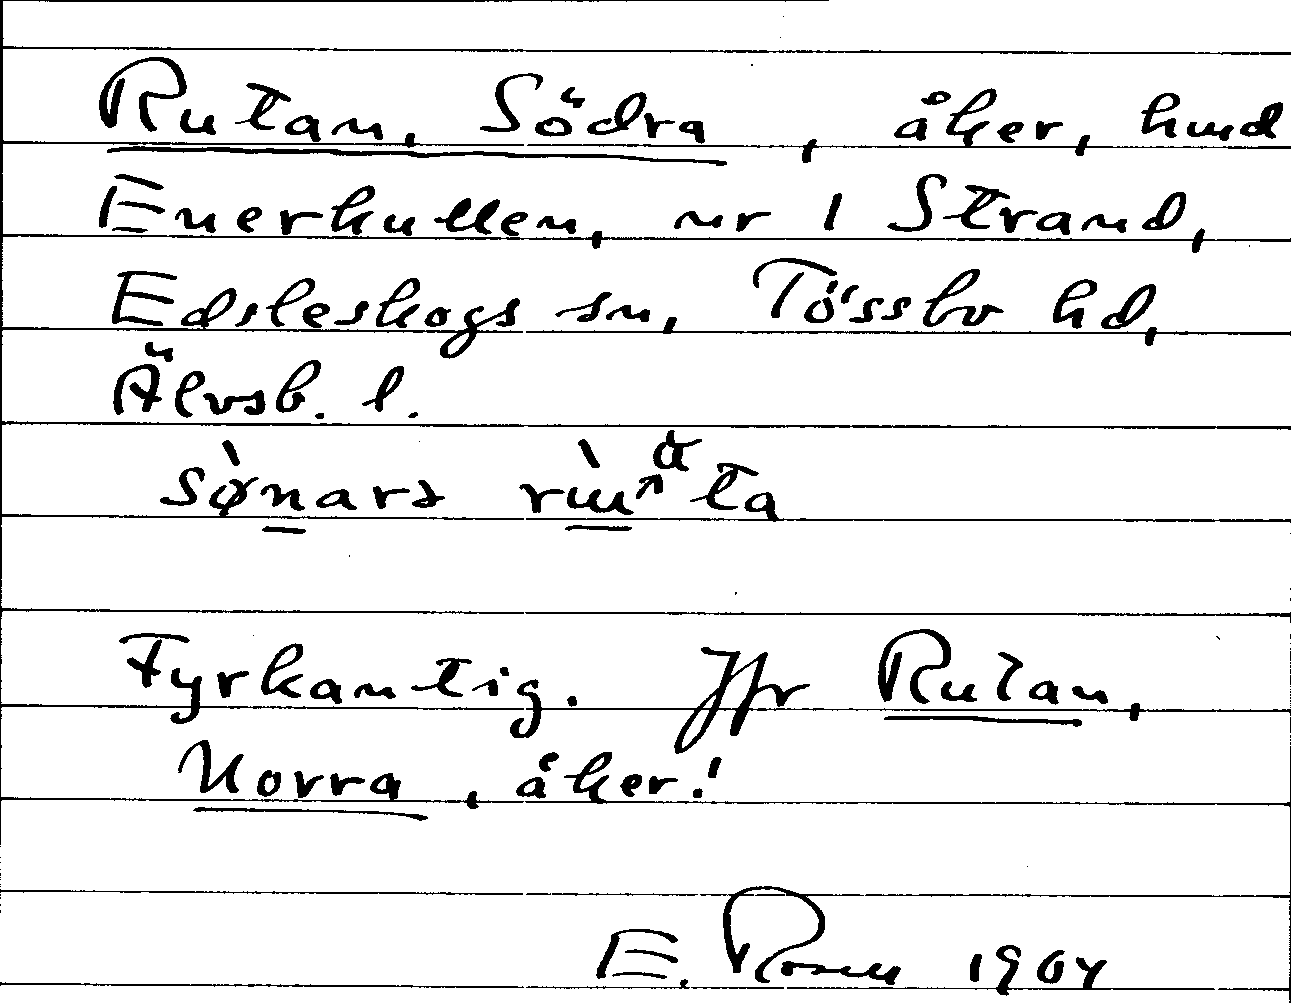 Rutan, Södra, åker, hmd
Enerkullen, nr 1 Strand,
Edsleskogs sn, Tössbo hd,
Älvsb. l.
Fyrkantig. Jfr Rutan,
Norra, åker!
E. Rosen 1904